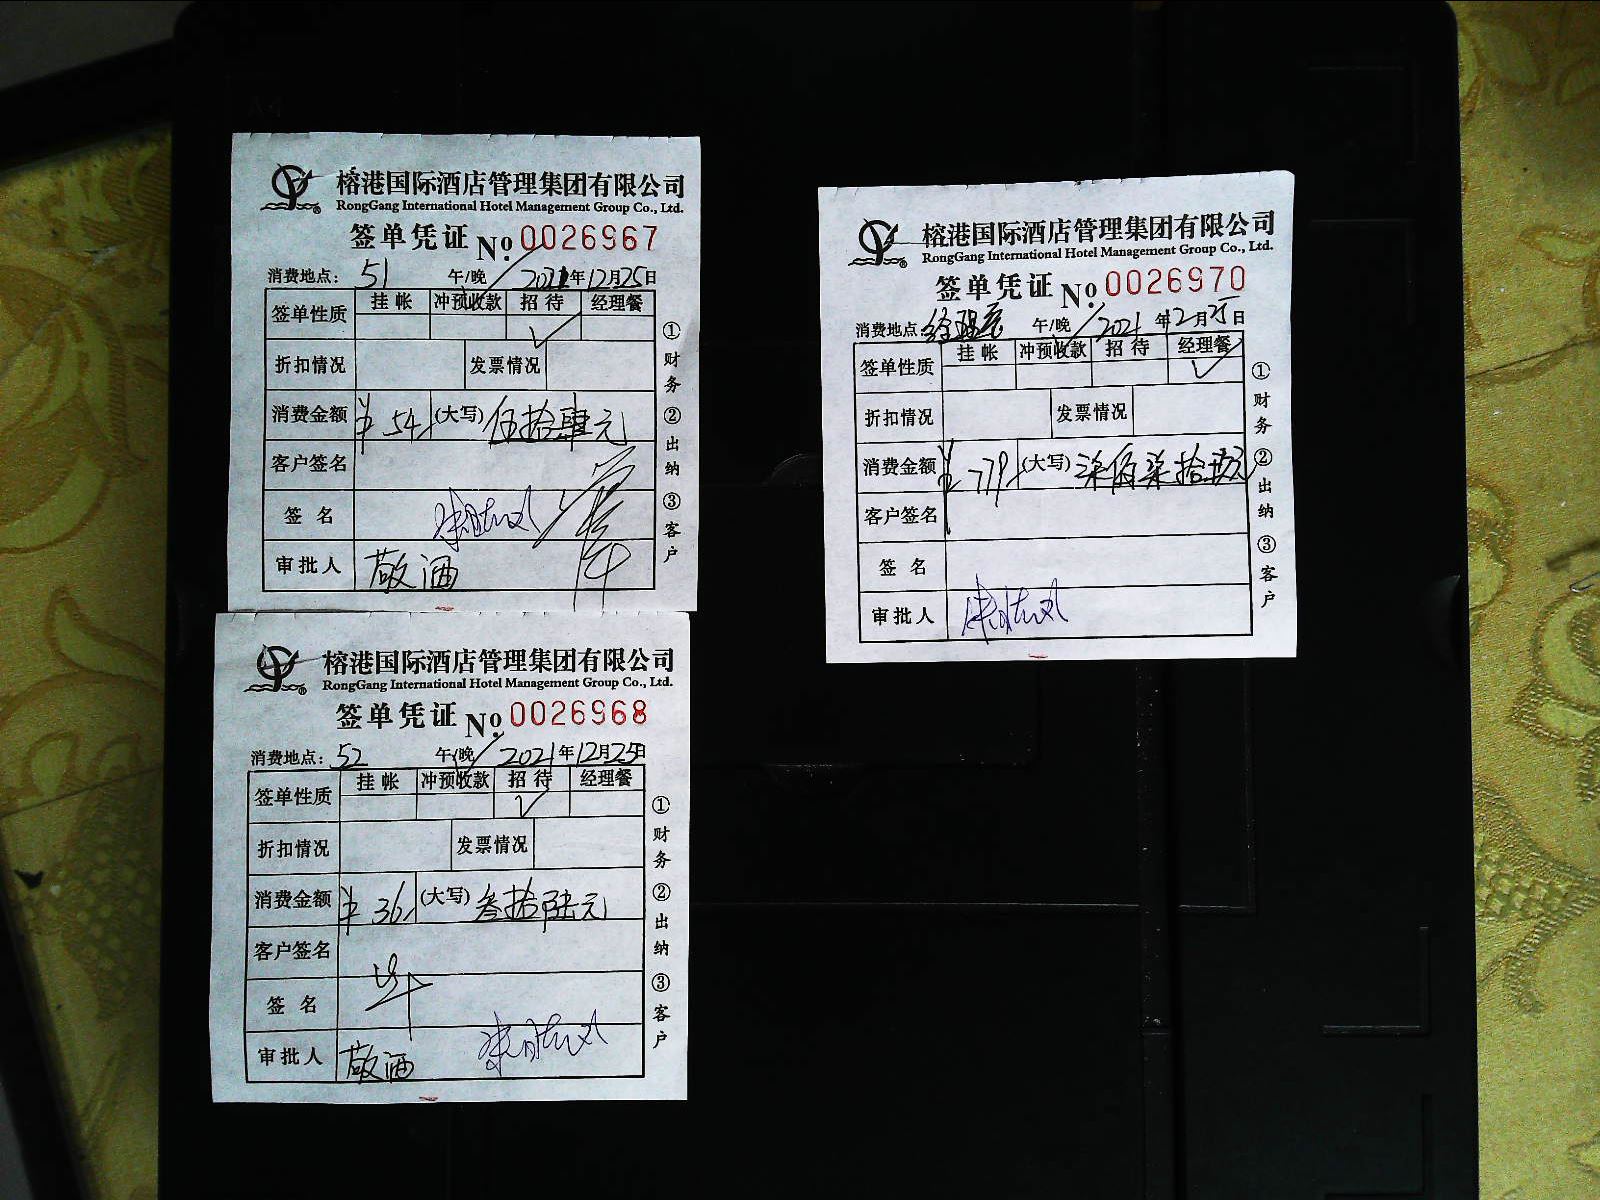 榕港国际酒店管理集团有限公司
RongGang International Hotel Management Group Co., Ltd.
签单凭证 No. 0026967
消费地点: 51 午/晚 2021年12月25日
签单性质 挂帐 冲预收款 招待 经理餐
√
折扣情况 发票情况
消费金额 ¥54 (大写) 伍拾肆元
客户签名
签名
审批人 敬酒
①财务 ②出纳 ③客户
榕港国际酒店管理集团有限公司
RongGang International Hotel Management Group Co., Ltd.
签单凭证 No. 0026968
消费地点: 52 午/晚 2021年12月25日
签单性质 挂帐 冲预收款 招待 经理餐
√
折扣情况 发票情况
消费金额 ¥36 (大写) 叁拾陆元
客户签名
签名
审批人 敬酒
①财务 ②出纳 ③客户
榕港国际酒店管理集团有限公司
RongGang International Hotel Management Group Co., Ltd.
签单凭证 No. 0026970
消费地点: 午/晚 2021年12月25日
签单性质 挂帐 冲预收款 招待 经理餐
√
折扣情况 发票情况
消费金额 ¥779 (大写) 柒佰柒拾玖元
客户签名
签名
审批人
①财务 ②出纳 ③客户